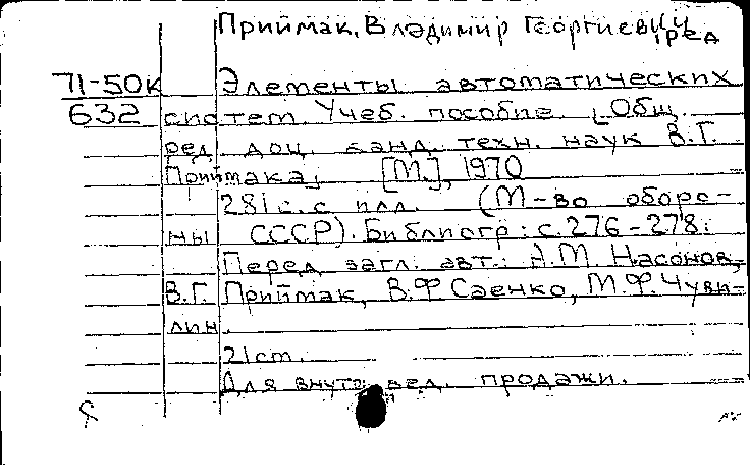 Приймак, Владимир Георгиевич, ред
71-50К Элементы автоматических
632 систем. Учеб. пособие. [Общ.
ред. доц. канд. техн. наук В.Г.
Приймака] [М.], 1970
281 с. с илл. (М-во оборо-
ны СССР). Библиогр: с. 276-278.
Перед загл. авт.: А.М. Насонов,
В.Г. Приймак, В.Ф Саенко, М.Ф. Чуви-
лин.
21 cm.
Для внутр. вед. продажи.